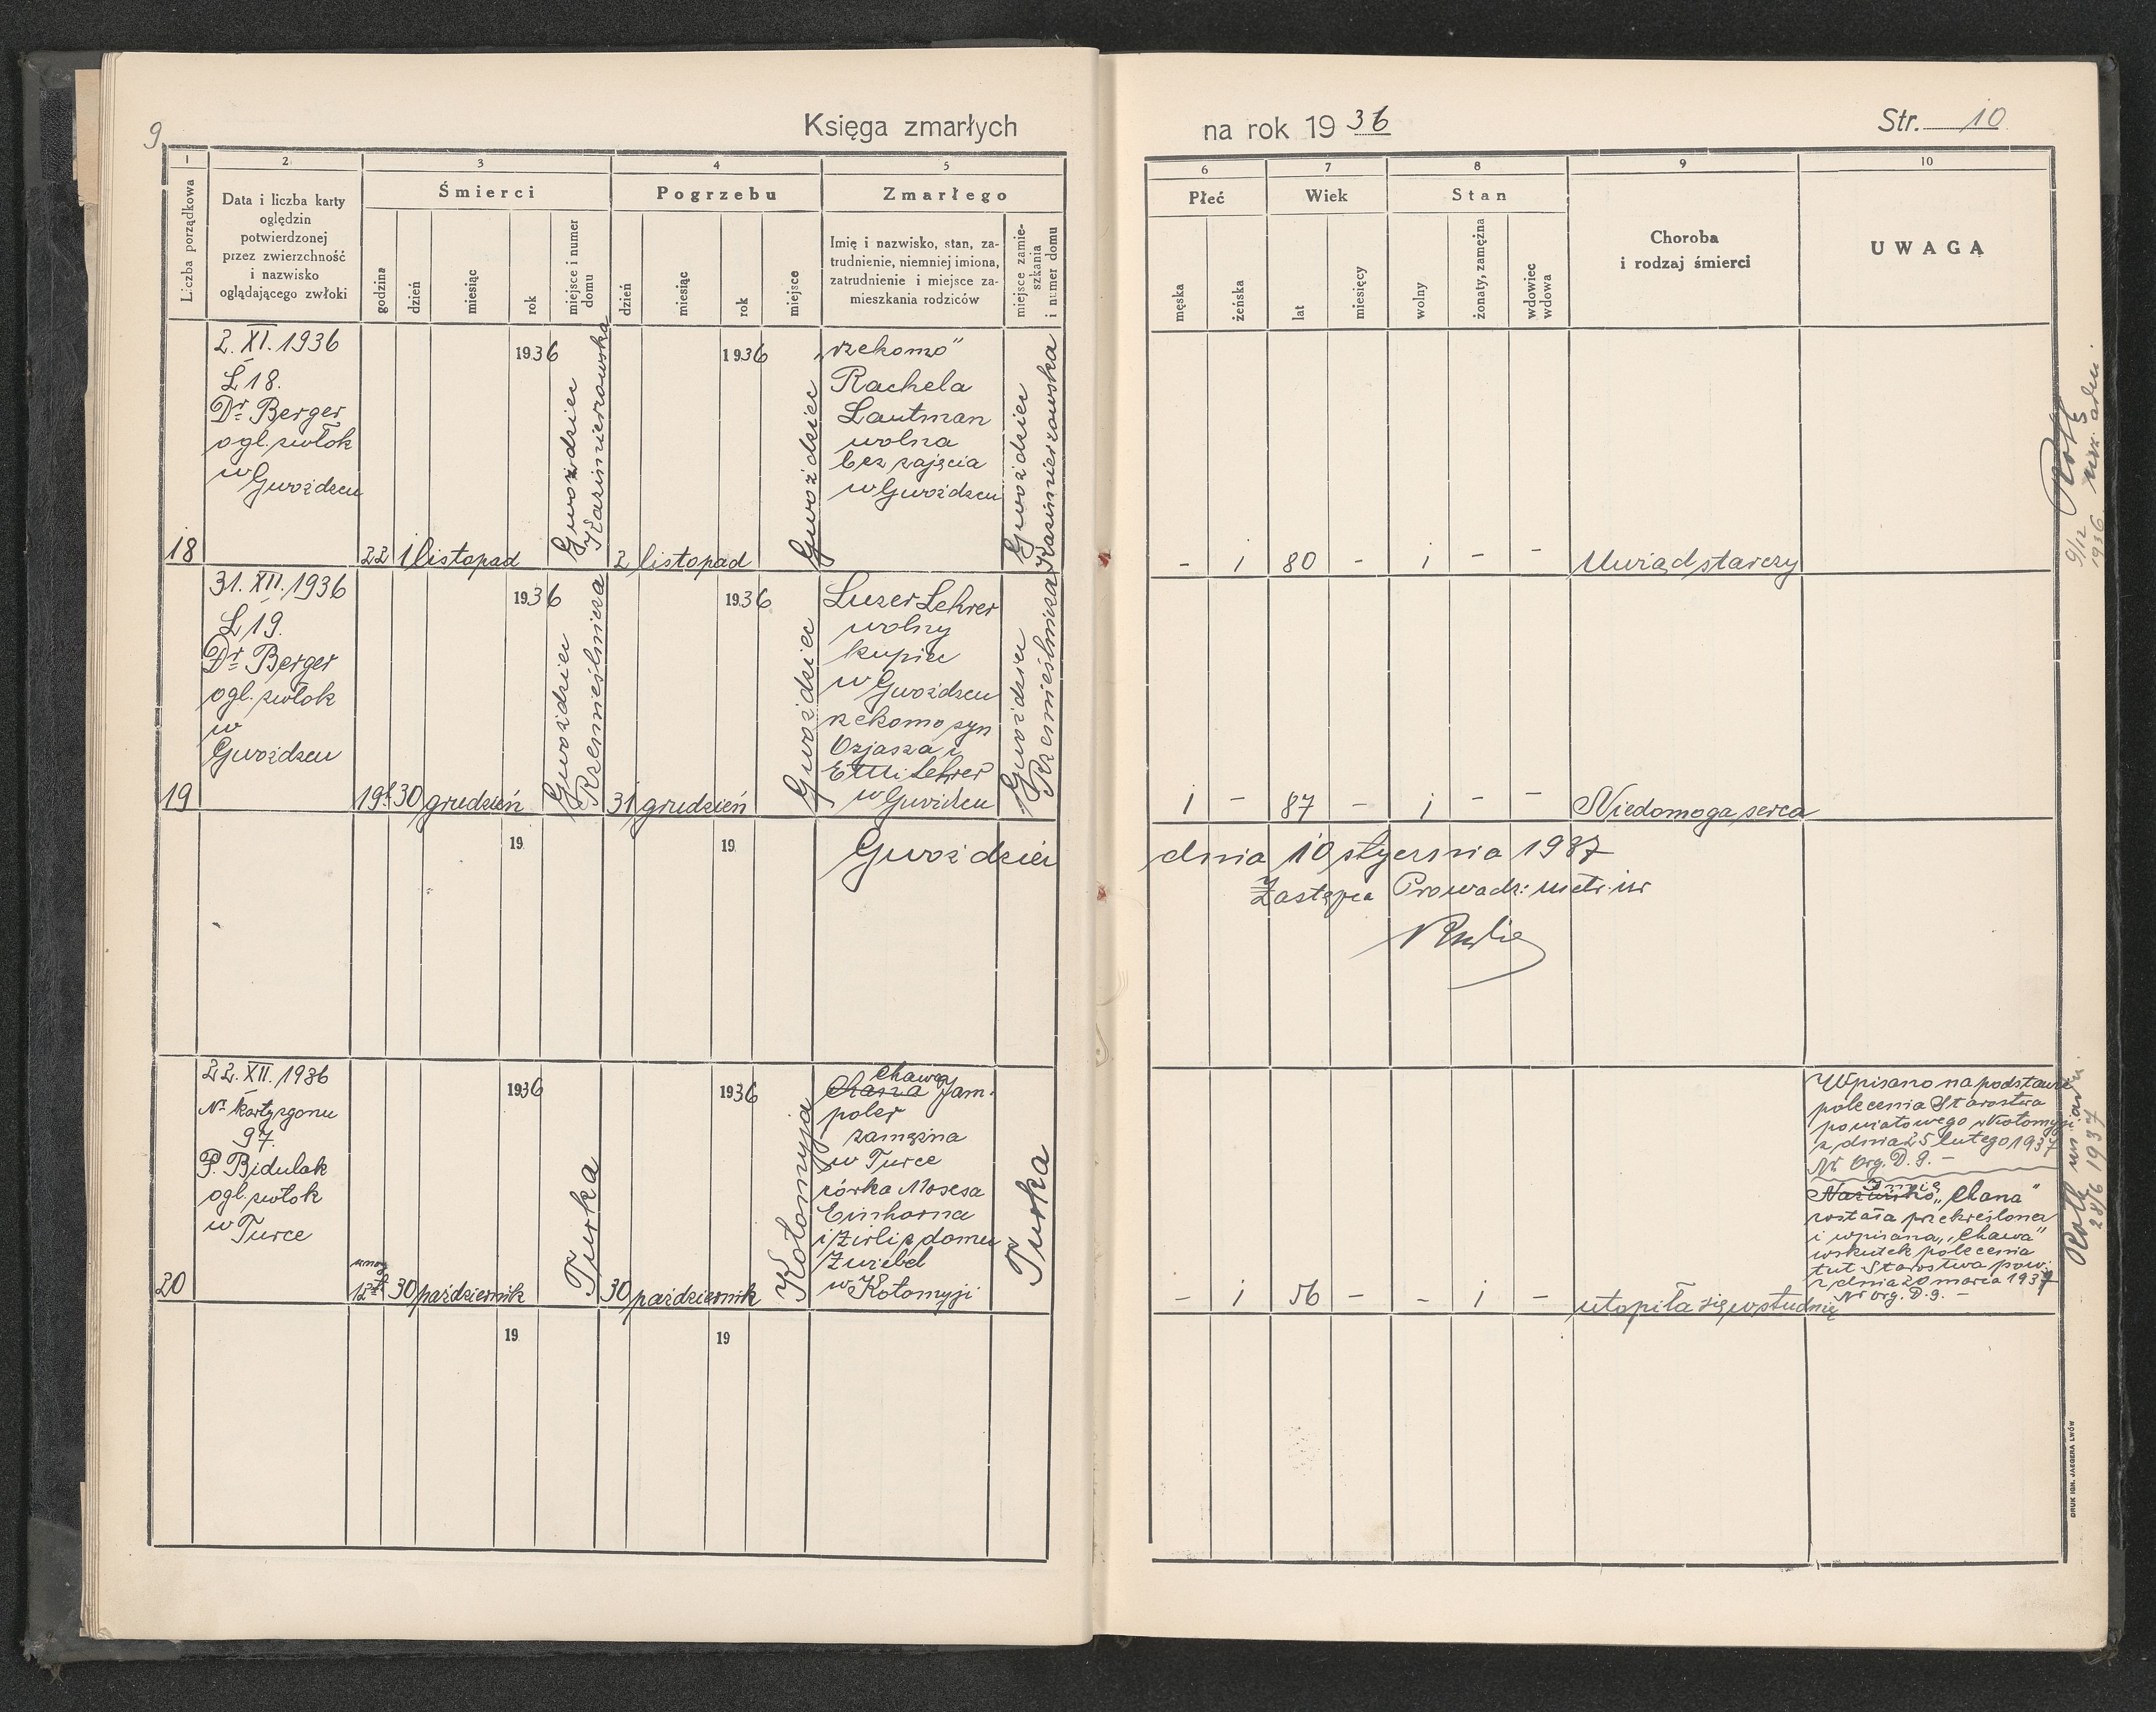 9
Księga zmarłych
na rok 1936
Str. 10
1
2
3
4
5
6
7
8
9
10
Liczba porządkowa
Data i liczba karty
oględzin
potwierdzonej
przez zwierzchność
i nazwisko
oglądającego zwłoki
Śmierci
godzina
dzień
miesiąc
rok
miejsce i numer
domu
Pogrzebu
dzień
miesiąc
rok
miejsce
Zmarłego
Imię i nazwisko, stan, za-
trudnienie, niemniej imiona,
zatrudnienie i miejsce za-
mieszkania rodziców
miejsce zamie-
szkania
i numer domu
Płeć
męska
żeńska
Wiek
lat
miesięcy
Stan
wolny
żonaty, zamężna
wdowiec
wdowa
Choroba
i rodzaj śmierci
UWAGA
18
2. XI. 1936
L 18.
Dr Berger
ogl. zwłok
w Gwoźdzcu
22
1
listopad
1936
Gwoździec
Kazimierzowska
2
listopad
1936
Gwoździec
„rzekomo"
Rachela
Lautman
wolna
bez zajęcia
w Gwoźdzcu
Gwoździec
Kazimierzowska
-
1
80
-
1
-
-
Uwiąd starczy
9/12
1936
19
31. XII. 1936
L 19.
Dr Berger
ogl. zwłok
w
Gwoźdzcu
19h
30
grudzień
1936
Gwoździec
Rzemieślnicza
31
grudzień
1936
Gwoździec
Luzer Lehrer
wolny
kupiec
w Gwoźdzcu
rzekomo syn
Ozjasza i
Etti Lehrer
w Gwoźdzcu
Gwoździec
Rzemieślnicza
1
-
87
-
1
-
-
Niedomoga serca
19
19
Gwoździec
dnia 10 stycznia 1937
Zastępca Prowadz. metr. izr
20
22. XII. 1936
Nr karty zgonu
97.
P. Bidulak
ogl. zwłok
w Turce
12
30
październik
1936
Turka
30
październik
1936
Kołomyja
Chawa
Jam-
poler
zamężna
w Turce
córka Mosesa
Einhorna
i Zirli z domu
Zwiebel
w Kołomyji
Turka
-
1
56
-
-
1
-
utopiła się w studnię
Wpisano na podstawie
polecenia Starostwa
powiatowego w Kołomyji
z dnia 25 lutego 1937
Nr Org. D. 9. -
Imię
Nazwisko „Chana"
została przekreślona
i wpisana „Chawa"
wskutek polecenia
tut Starostwa pow.
z dnia 20 marca 1937
Nr Org. D. 9. -
28/6 1937
19
19
DRUK IGN. JAEGERA LWÓW